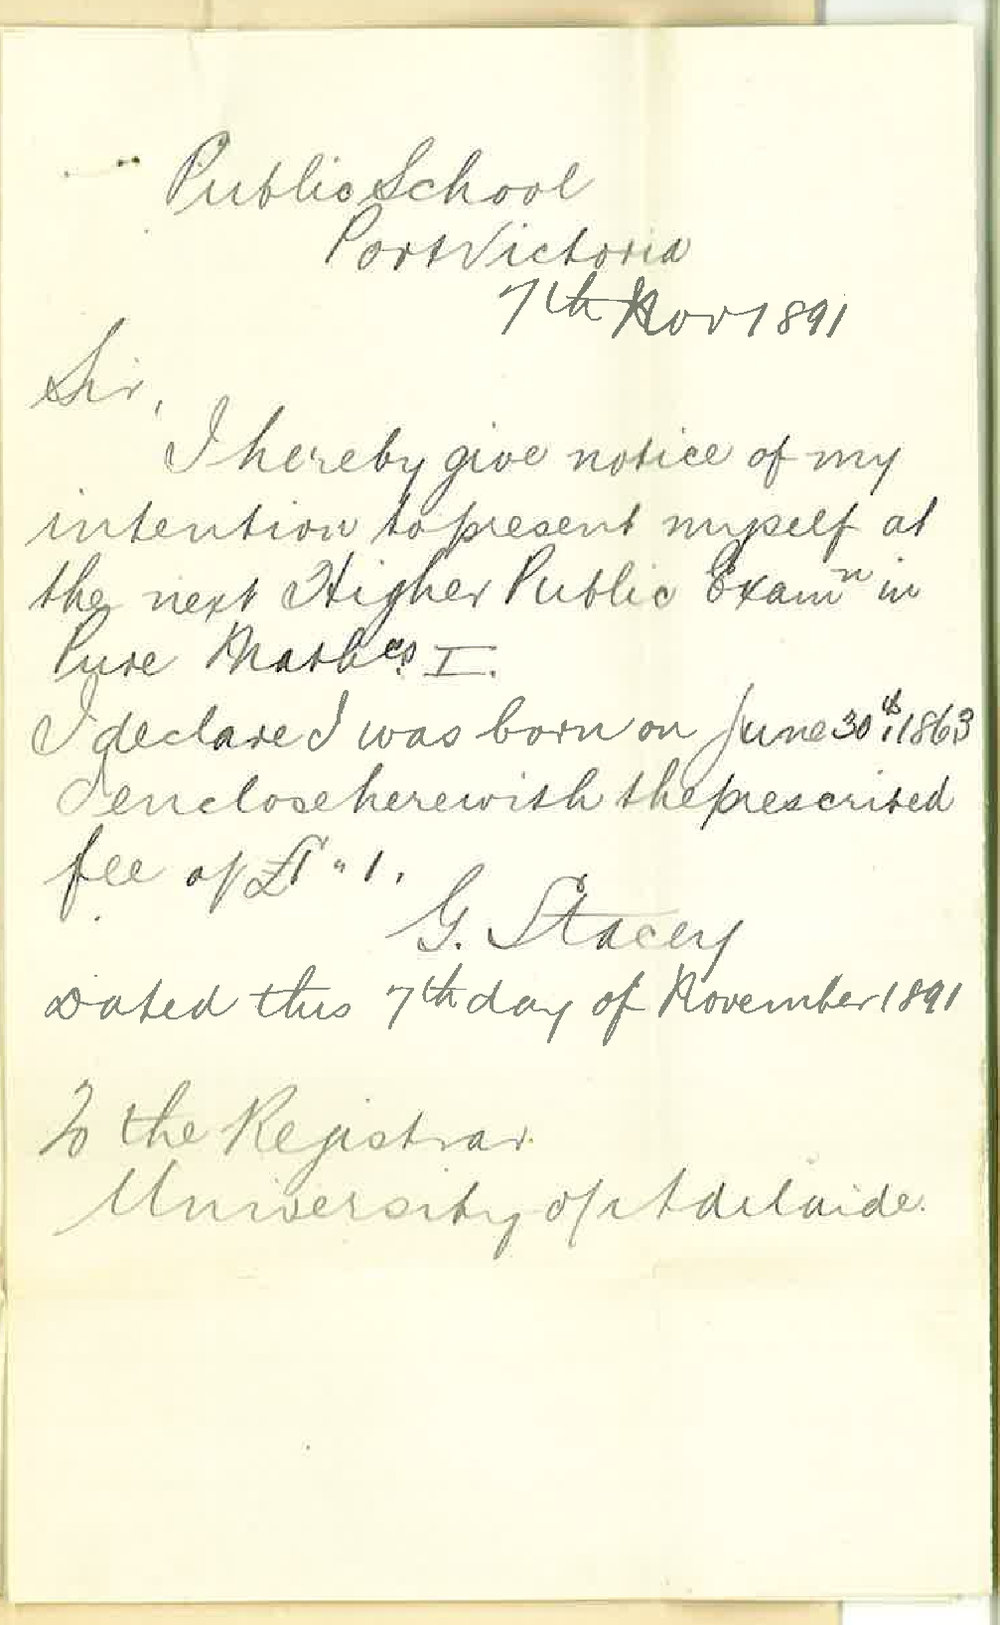 Public School
Port Victoria
7th Nov 1891
Sir,
I hereby give notice of my
intention to present myself at
the next Higher Public Examⁿ in
Pure Mathᶜˢ. I.
I declare I was born on June 30th. 1863
I enclose herewith the prescribed
fee of £1 " 1.
G. Stacey
Dated this 7th day of November 1891
To the Registrar
University of Adelaide.